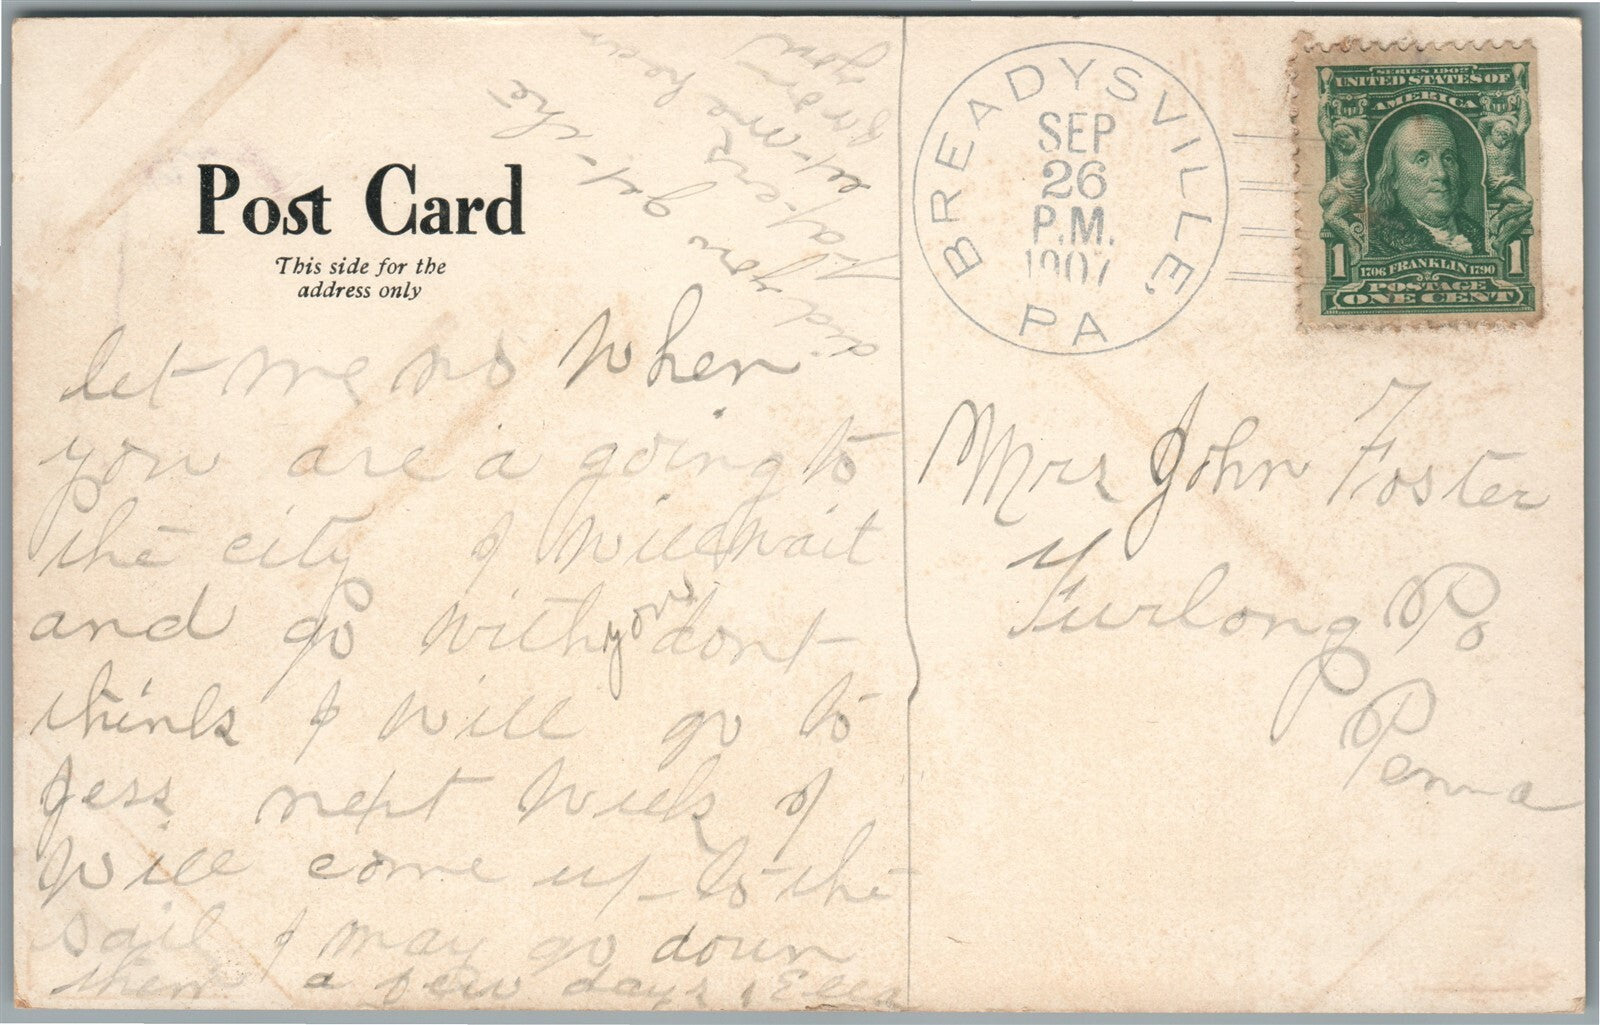 Post Card
This side for the
address only
let me no when
you are a going to
the city I will wait
and go with you dont
think I will go to
Jess next week I
will come up to the
sail I may go down
then a few days, Ella
did you get the
let me hear
from you
BREADYSVILLE, PA
SEP
26
P.M.
1907
SERIES 1902
UNITED STATES OF
AMERICA
1 1
1706 FRANKLIN 1790
POSTAGE
ONE CENT
Mrs John Foster
Furlong Po
Penna